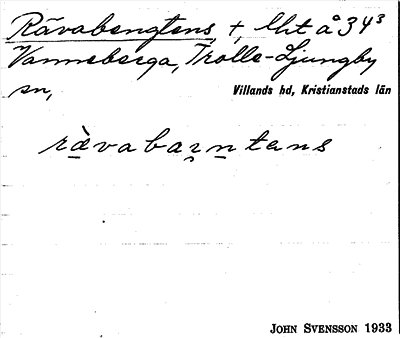 Rävabengtens, +, Lht å 34³
Vanneberga, Trolle-Ljungby
sn, Villands hd, Kristianstads län
rävabarntans
JOHN SVENSSON 1933